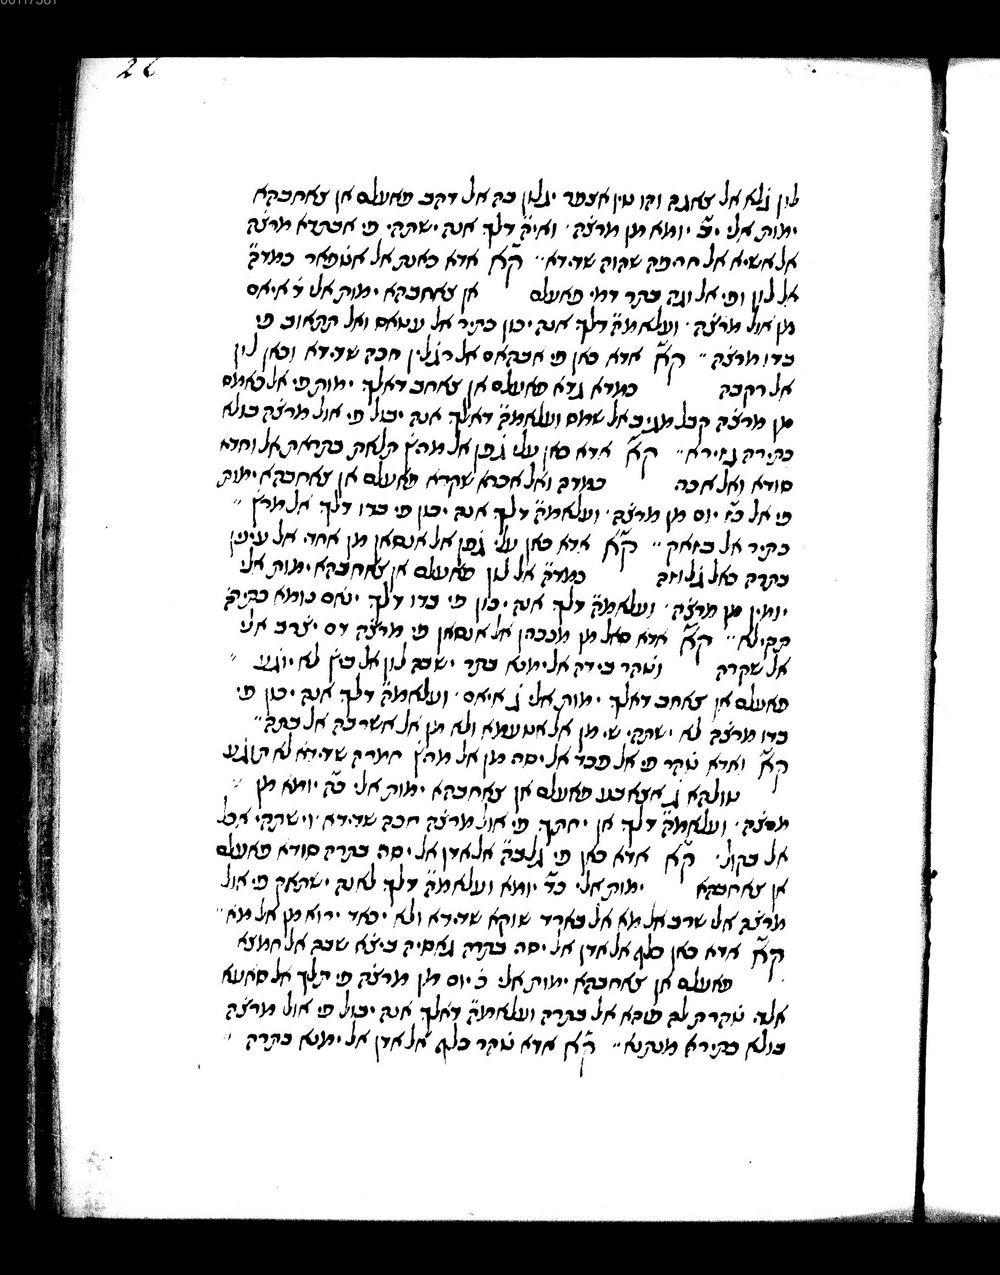 לין גלא אל צאנה והו טין אצפר יגלון בה אל דהב פאעלם אן צאחבהא
ימות אלי יב יומא מן מרצה· ואיה דלך אנה ישתהי פי אבתדא מרצה
אל אשיא אל חריפה שהוה שדידא״ קא אדא כאנת אל אטפאר כמדה
אל לון ופי אל וגה בתר דמי פאעלם אן צאחבהא ימות אלי ד איאם
מן אול מרצה· ועלאמה דלך אנה יכון כתיר אל עטאס ואל תתאוב פי
בדו מרצה״ קא אדא כאן פי אבהאם אל רגלין חכה שדידא וכאן לון
אל רקבה כמדא גדא פאעלם אן צאחב דאלך ימות פי אל כאמס
מן מרצה קבל מגיב אל שמס ועלאמה דאלך אנה יבול פי אול מרצה בולא
כתירה גזירא״ קא אדא כאן עלי גפן אל מריץ תלאת בתראת אל וחדא
סודא ואל אכרה כמדה ואל אכרא שקרא פאעלם אן צאחבהא ימות
פי אל כז יום מן מרצה· ועלאמה דלך אנה יכון פי בדו דלך אל מרץ״
כתיר אל בזאק״ קא אדא כאן עלי גפן אל אנסאן מן אחד אל עינין
בתרה כאל גלוזה כמדה אל לון פאעלם אן צאחבהא ימות אלי
יומין מן מרצה· ועלאמה דלך אנה יכון פי בדו דלך ינאם נומא כתיר
תקילא״ קא אדא סאל מן מנכרין אל אנסאן פי מרצה דם יצרב אלי
אל שקרה וטהר בידה אל ימנא בתר ישבה לון אל ביץ לא יוגע״
פאעלם אן צאחב דאלך ימות אלי ג איאם· ועלאמה דלך אנה יכון פי
בדו מרצה לא ישתהי שי מן אל אטעמא ולא מן אל אשרבה אל בתה״
קא ואדא טהר פי אל פכד אל יסרה מן אל מריץ חמרה שדידא לא תוגע
טולהא ג אצאבע פאעלם אן צאחבהא ימות אלי כה יומא מן״
מרצה· ועלאמה דלך אן יחתך פי אול מרצה חכה שדידא וישתהי אכל
אל בקול· קא אדא כאן פי גלבה אל אדן אל יסרה בתרה סודא פאעלם
אן צאחבהא ימות אלי כד יומא ועלאמה דלך לאנה ישתאק פי אול
מרצה אלי שרב אל מא אל בארד שוקא שדידא ולא יכאד ירוא מן אל מא״
קא אדא כאן כלף אל אדן אל יסרה בתרה גאסיה ביצא שבה אל חמצא
פאעלם אן צאחבהא ימות אלי כ יום מן מרצה פי תלך אל סאעא
אלדי טהרת לה פיהא אל בתרה ועלאמה דאלך אנה יבול פי אול מרצה
בולא כתירא מנתנא״ קא אדא טהר כלף אל אדן אל ימנא בתרה״